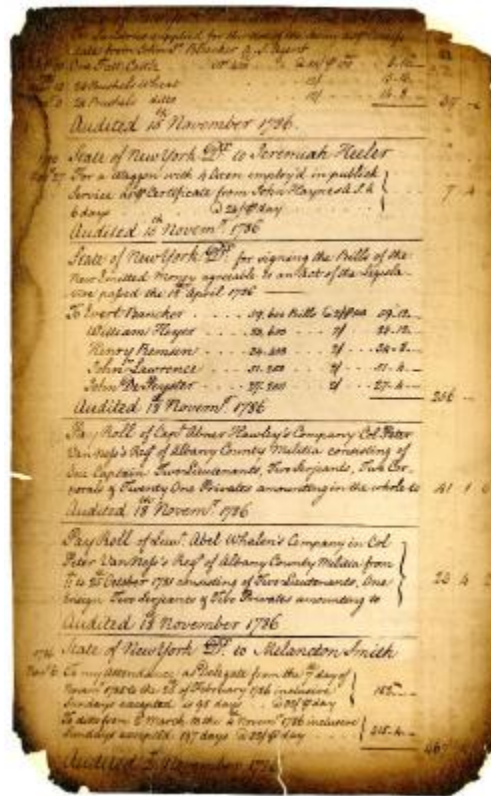 To Sundries supplied for the use of the
cate from John Js. Bleecker A. S. Agent
One Fatt Cattle 8.16.
26 Bushels Wheat 12/ 15.12.
24 Bushels ditto 12/ 14.8.
Audited 15th November 1786.
State of New York Dr. to Jeremiah Keeler
For a Waggon with 4 Oxen employ'd in publick
Service as pr Certificate from John Haynes A.S.A
6 days @ 24/ pr day 7 4
Audited 16th Novemr. 1786
State of New York Dr. for signing the Bills of the
New Emitted Money agreable to an Act of the Legisla-
ture passed the 18th April 1786
To Evert Bancker 59.12
William Heyer 2/
Henry Remsen 2/
John Lawrence 2/ 51.4
John De Peyster 27.200 2/ 27.4
256
Audited 18 Novemr. 1786
Pay Roll of Capt. Abner Hawley's Company Col. Peter
Van Ness's Regt. of Albany County Militia consisting of
One Captain Two Lieutenants, Two Serjeants, Two Cor-
porals & Twenty One Privates amounting in the whole to 41 1
Audited 18th Novemr. 1786
Pay Roll of Lieut. Abel Whalen's Company in Col.
Peter Van Ness's Regt. of Albany County Militia from
to 25th October 1781 consisting of Two Lieutenants, One
Ensign Two Serjeants & Five Privates amounting to
Audited 18 November 1786
1786 State of New York Dr. to Melancton Smith
Novr. 6 To my attendance as Delegate from the 7th day of
Novemr. 1785 to the 28th of February 1786 inclusive
Sundays excepted is 98 days @ 32/ pr day
To ditto from March to the 4th Novemr. 1786 inclusive
Sundays excepted 197 days @ 32/ pr day 315.4
Audited November 1786